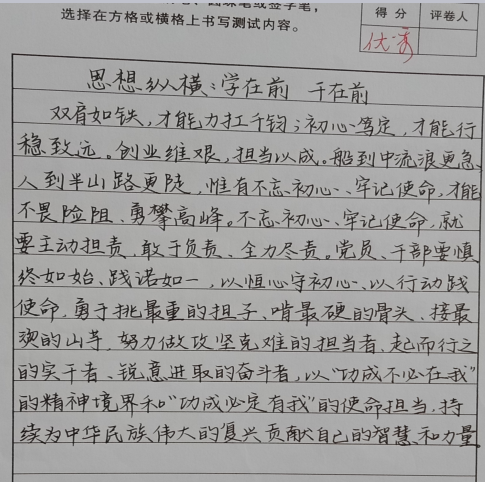 圆珠笔或签字笔，
选择在方格或横格上书写测试内容。
得 分 评卷人
优秀
思想纵横：学在前 干在前
双肩如铁，才能力扛千钧；初心笃定，才能行
稳致远。创业维艰，担当以成。船到中流浪更急、
人到半山路更陡，惟有不忘初心、牢记使命，才能
不畏险阻、勇攀高峰。不忘初心、牢记使命，就
要主动担责、敢于负责、全力尽责。党员、干部要慎
终如始、践诺如一，以恒心守初心、以行动践
使命，勇于挑最重的担子、啃最硬的骨头、接最
烫的山芋，努力做攻坚克难的担当者、起而行之
的实干者、锐意进取的奋斗者，以“功成不必在我”
的精神境界和“功成必定有我”的使命担当，持
续为中华民族伟大的复兴贡献自己的智慧和力量